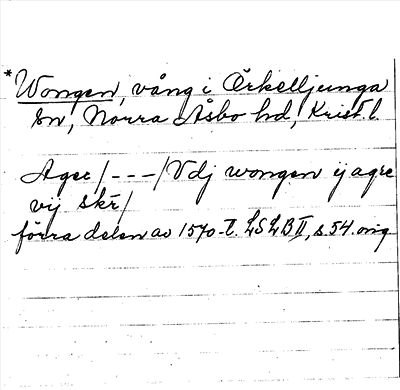 *Wongen, vång i Örkelljunga
sn, Norra Åsbo hd, Krist. l.
Ager /---/ Vdj wongen ij agre
vij skr̃/
förra delen av 1570-t. LSLB II, s. 54. orig